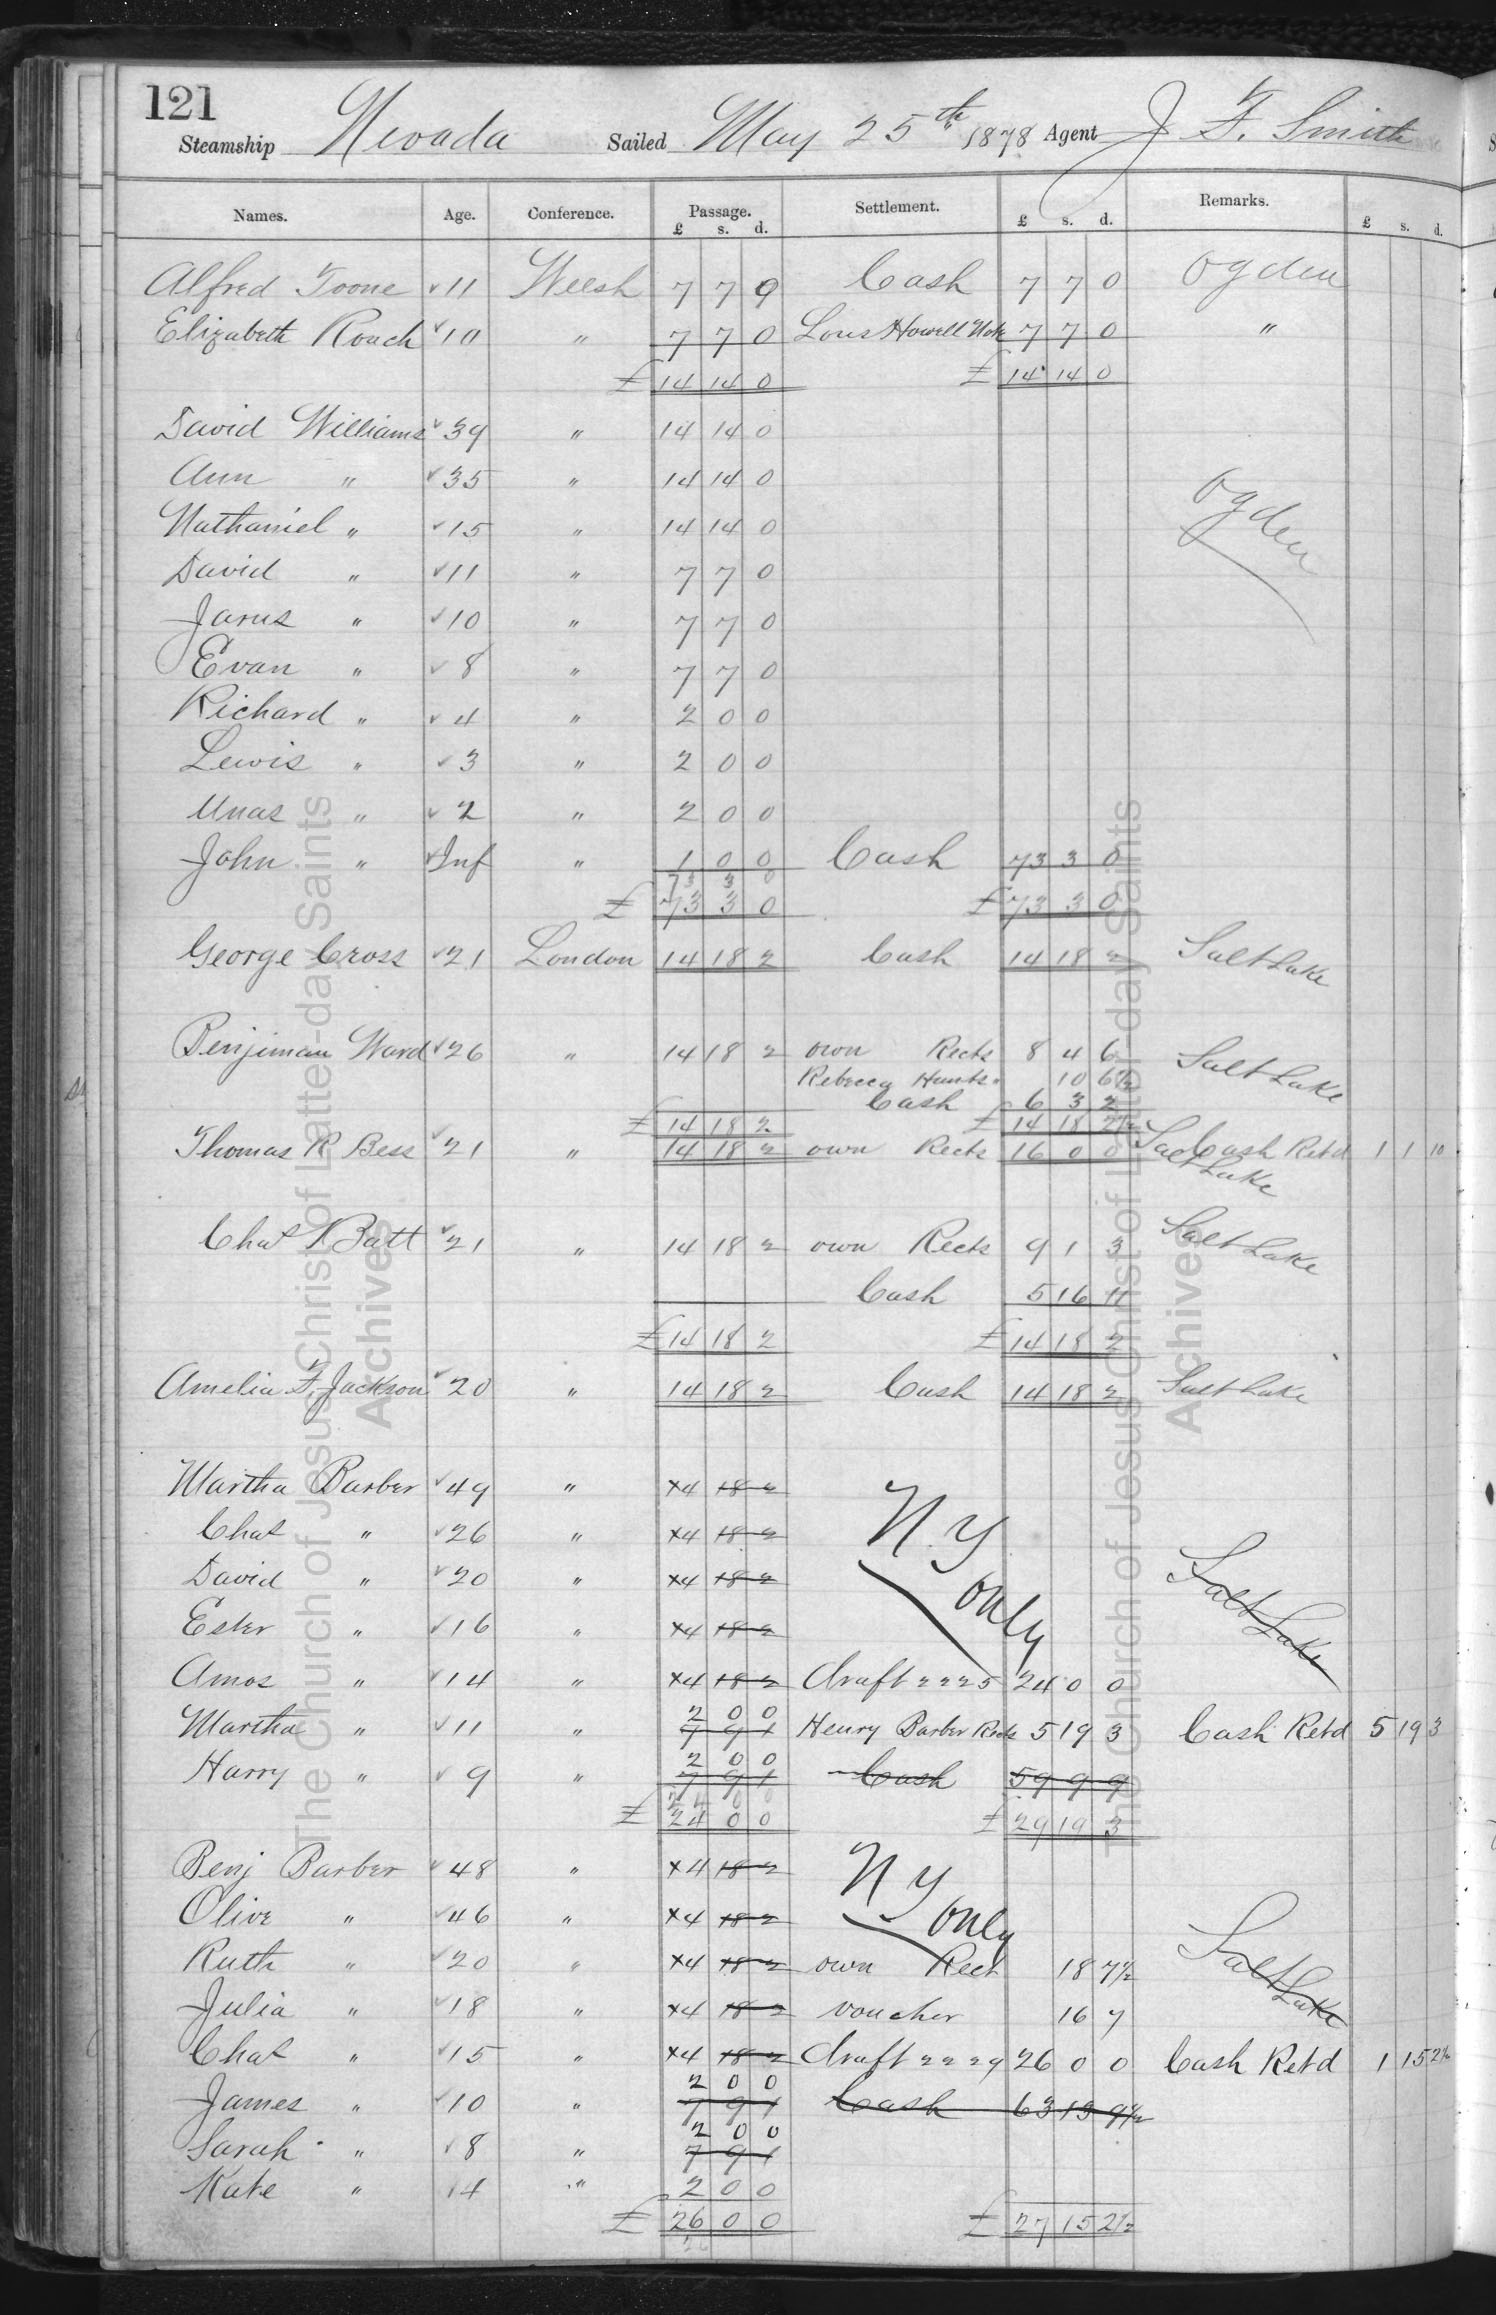 121
Steamship Nevada Sailed May 25th 1878 Agent J F. Smith
Names. Age. Conference. Passage. £ s. d. Settlement. £ s. d. Remarks. £ s. d.
Alfred Toone 11 Welsh 7 7 0 Cash 7 7 0 Ogden
Elizabeth Roach 10 " 7 7 0 Howell 7 7 0 "
£ 14 14 0 £ 14 14 0
David Williams 39 " 14 14 0
Ann " 35 " 14 14 0
Nathaniel " 15 " 14 14 0 Ogden
David " 11 " 7 7 0
Jarus " 10 " 7 7 0
Evan " 8 " 7 7 0
Richard " 4 " 2 0 0
Lewis " 3 " 2 0 0
Unas " 2 " 2 0 0
John " Inf " 1 0 0 Cash 73 3 0
73 3 0
£ 73 3 0 £ 73 3 0
George Cross 21 London 14 18 2 Cash 14 18 2 Salt Lake
Benjiman Ward 26 " 14 18 2 own Rects 8 4 6 Salt Lake
Rebecca Hunts " 10 6½
Cash 6 3 2
£ 14 18 2 £ 14 18 2½
Thomas R Bess 21 " 14 18 2 own Rects 16 0 0 Cash Retd 1 1 10
Salt Lake
Chas Batt 21 " 14 18 2 own Rects 9 1 3 Salt Lake
Cash 5 16 11
£ 14 18 2 £ 14 18 2
Amelia F. Jackson 20 " 14 18 2 Cash 14 18 2 Salt Lake
Martha Barber 49 " x4 18 2 N. Y
Chas " 26 " x4 18 2
David " 20 " x4 18 2 only Salt Lake
Ester " 16 " x4 18 2
Amos " 14 " x4 18 2 draft 2225 24 0 0
2 0 0
Martha " 11 " 7 9 1 Henry Barber Rects 5 19 3 Cash Retd 5 19 3
2 0 0
Harry " 9 " 7 9 1 Cash 59 9 9
24 0 0
£ 24 0 0 £ 29 19 3
Benj Barber 48 " x4 18 2 N Y
Olive " 46 " x4 18 2 only
Ruth " 20 " x4 18 2 own Rect 18 7½ Salt Lake
Julia " 18 " x4 18 2 voucher 16 7
Chas " 15 " x4 18 2 draft 2229 26 0 0 Cash Retd 1 15 2½
2 0 0
James " 10 " 7 9 1 Cash 63 13 9½
2 0 0
Sarah " 8 " 7 9 1
Kate " 4 " 2 0 0
£ 26 0 0 £ 27 15 2½
26
The Church of Jesus Christ of Latter-day Saints
Archives
The Church of Jesus Christ of Latter-day Saints
Archives